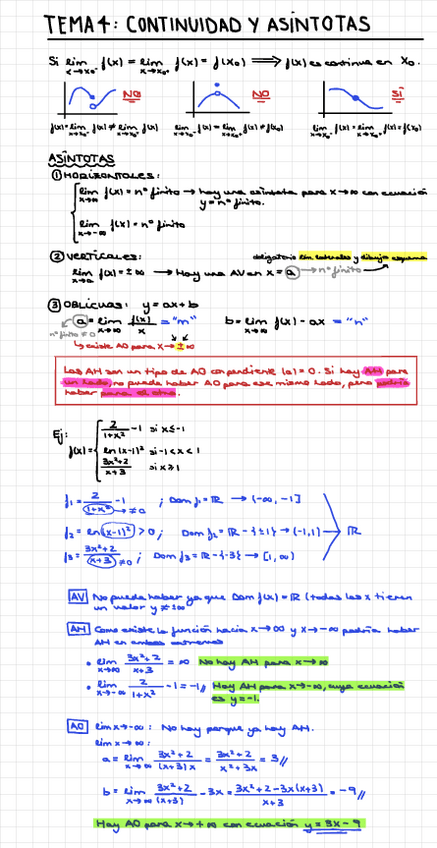 TEMA 4: CONTINUIDAD Y ASÍNTOTAS
Si lim x→x₀⁻ f(x) = lim x→x₀⁺ f(x) = f(x₀) ⟹ f(x) es continua en x₀.
NO NO SÍ
f(x)=lim x→x₀⁻ f(x) ≠ lim x→x₀⁺ f(x) lim x→x₀⁻ f(x) = lim x→x₀⁺ f(x) ≠ f(x₀) lim x→x₀⁻ f(x) = lim x→x₀⁺ f(x) = f(x₀)
ASÍNTOTAS
① HORIZONTALES:
lim x→∞ f(x) = nº finito → hay una asíntota para x→∞ con ecuación
y = nº finito.
lim x→-∞ f(x) = nº finito
② VERTICALES: obligatorio lím laterales y dibujo esquema
lim x→a f(x) = ±∞ → Hay una AV en x = a → nº finito
③ OBLICUAS: y = ax+b
a = lim x→∞ f(x)/x = "m" b = lim x→∞ f(x) - ax = "n"
nº finito ≠ 0
↳ existe AO para x→ ±∞
Las AH son un tipo de AO con pendiente (a) = 0. Si hay AH para
un lado, no puede haber AO para ese mismo lado, pero podría
haber para el otro.
Ej:
f(x) = { 2/(1+x²) - 1 si x≤-1
ln(x-1)² si -1<x<1
(3x²+2)/(x+3) si x≥1
f₁ = 2/(1+x²) - 1 ; Dom f₁ = ℝ → (-∞, -1]
→ ≠0
f₂ = ln(x-1)² > 0 ; Dom f₂ = ℝ - {±1} → (-1,1) ℝ
f₃ = (3x²+2)/(x+3) ≠0 ; Dom f₃ = ℝ - {-3} → [1, ∞)
AV No puede haber ya que Dom f(x) = ℝ (todas las x tienen
un valor y ≠ ±∞
AH Como existe la función hacia x→∞ y x→-∞ podría haber
AH en ambos extremos
• lim x→∞ (3x²+2)/(x+3) = ∞ No hay AH para x→∞
• lim x→-∞ 2/(1+x²) - 1 = -1 // Hay AH para x→-∞, cuya ecuación
es y=-1.
AO lim x→-∞ : No hay porque ya hay AH.
lim x→∞ :
a = lim x→∞ (3x²+2)/((x+3)x) = (3x²+2)/(x²+3x) = 3 //
b = lim x→∞ (3x²+2)/(x+3) - 3x = (3x²+2-3x(x+3))/(x+3) = -9 //
Hay AO para x→+∞ con ecuación y = 3x - 9